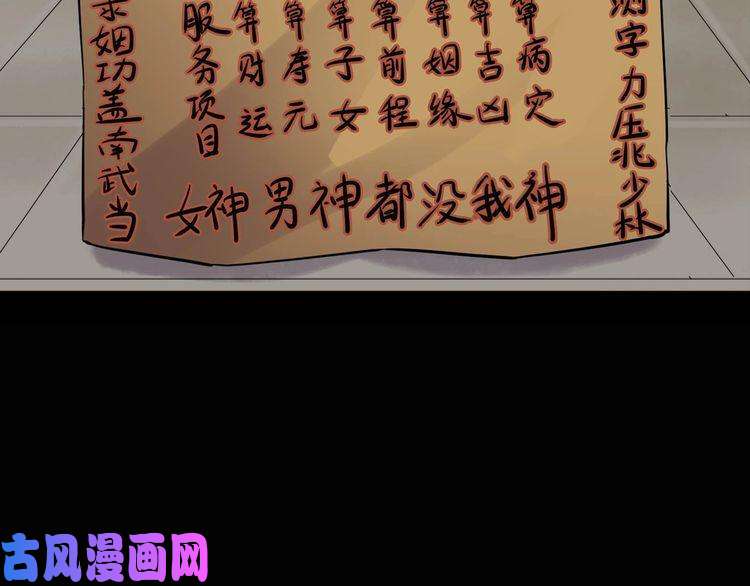 求姻功盖南武当
服务项目
算财运
算寿元
算子女
算前程
算姻缘
算吉凶
算病灾
测字力压北少林
女神男神都没我神
古风漫画网